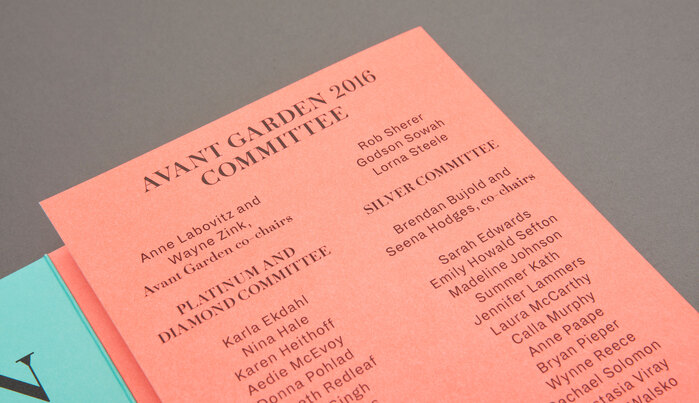 AVANT GARDEN 2016
COMMITTEE
Anne Labovitz and
Wayne Zink,
Avant Garden co-chairs
PLATINUM AND
DIAMOND COMMITTEE
Karla Ekdahl
Nina Hale
Karen Heithoff
Aedie McEvoy
Donna Pohlad
Redleaf
Singh
Rob Sherer
Godson Sowah
Lorna Steele
SILVER COMMITTEE
Brendan Bujold and
Seena Hodges, co-chairs
Sarah Edwards
Emily Howald Sefton
Madeline Johnson
Summer Kath
Jennifer Lammers
Laura McCarthy
Calla Murphy
Anne Paape
Bryan Pieper
Wynne Reece
Rachael Solomon
Viray
Walsko